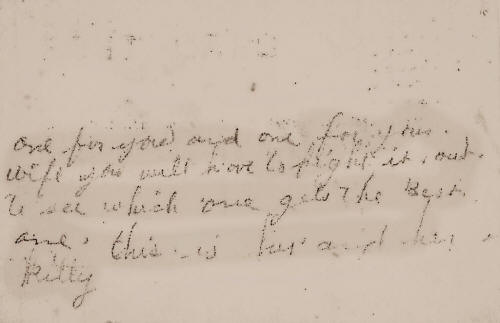 one for you and one for your
wife you will have to fight it out
to see which one gets the best
one. this is her and her
Kitty